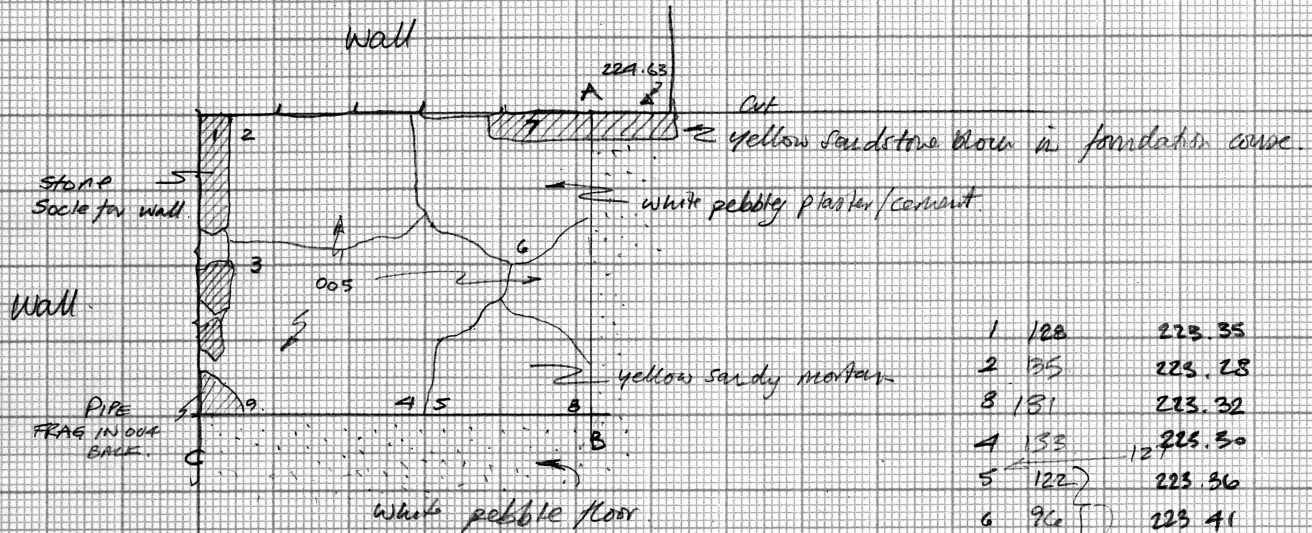 Wall
224.63
A
Cut
yellow sandstone block in foundation course.
1 2
stone
Socle for wall.
white pebbly plaster/cement.
6
3
005
Wall.
yellow sandy mortar
PIPE
FRAG IN 004
BACK.
9. 4 5 8
C B
white pebble floor.
1 128 223.35
2 135 223.28
3 131 223.32
4 133 223.30
5 122 223.36
6 96 223 41